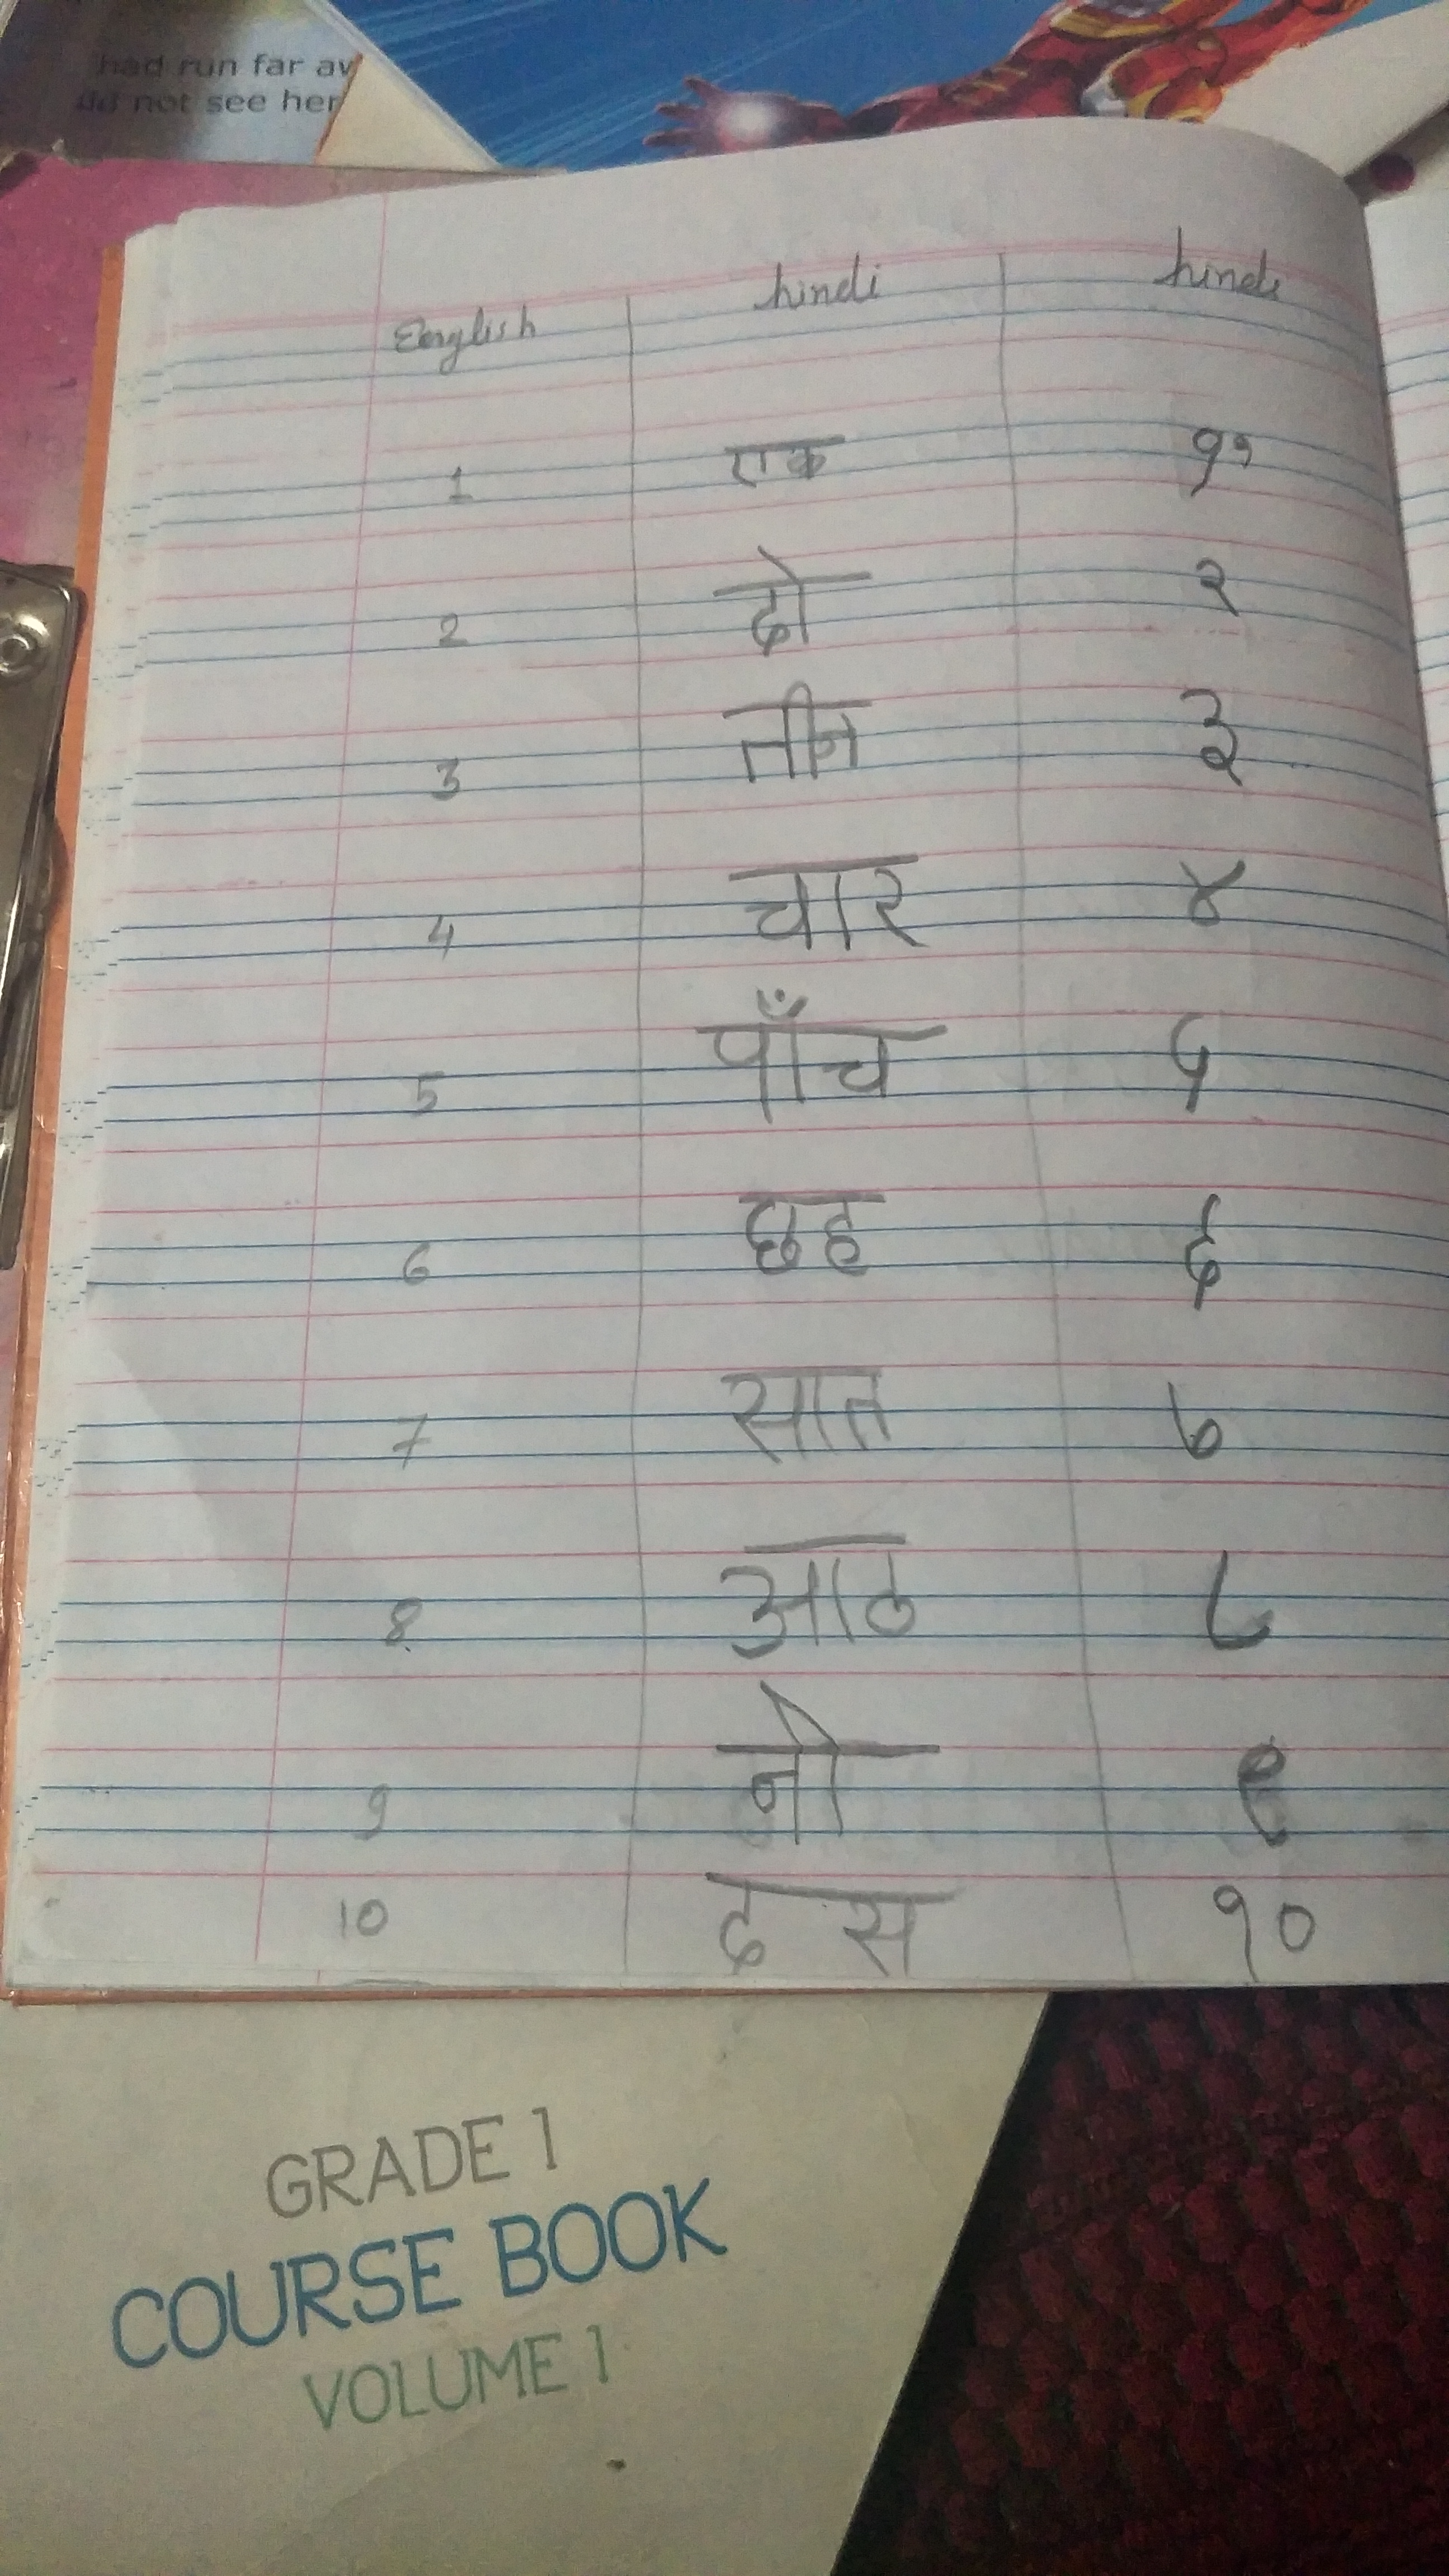 had run far
not see her
English hindi hindi
1 एक १
2 दो २
3 तीन ३
4 चार ४
5 पाँच ५
6 छह ६
7 सात ७
8 आठ ८
9 नौ ९
10 दस १०
GRADE 1
COURSE BOOK
VOLUME 1